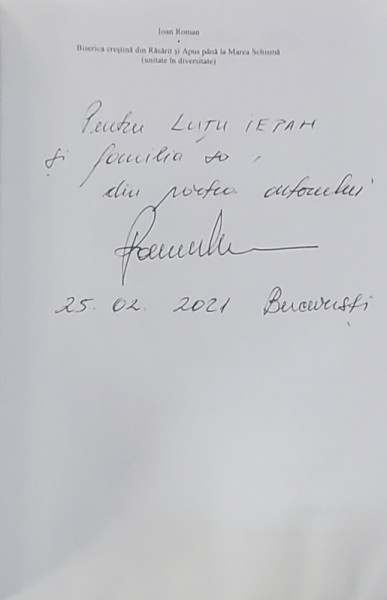 Ioan Roman
•
Biserica creștină din Răsărit și Apus până la Marea Schismă
(unitate în diversitate)
Pentru LUȚU IEPAN
și familia sa,
din partea autorului
25. 02. 2021 București